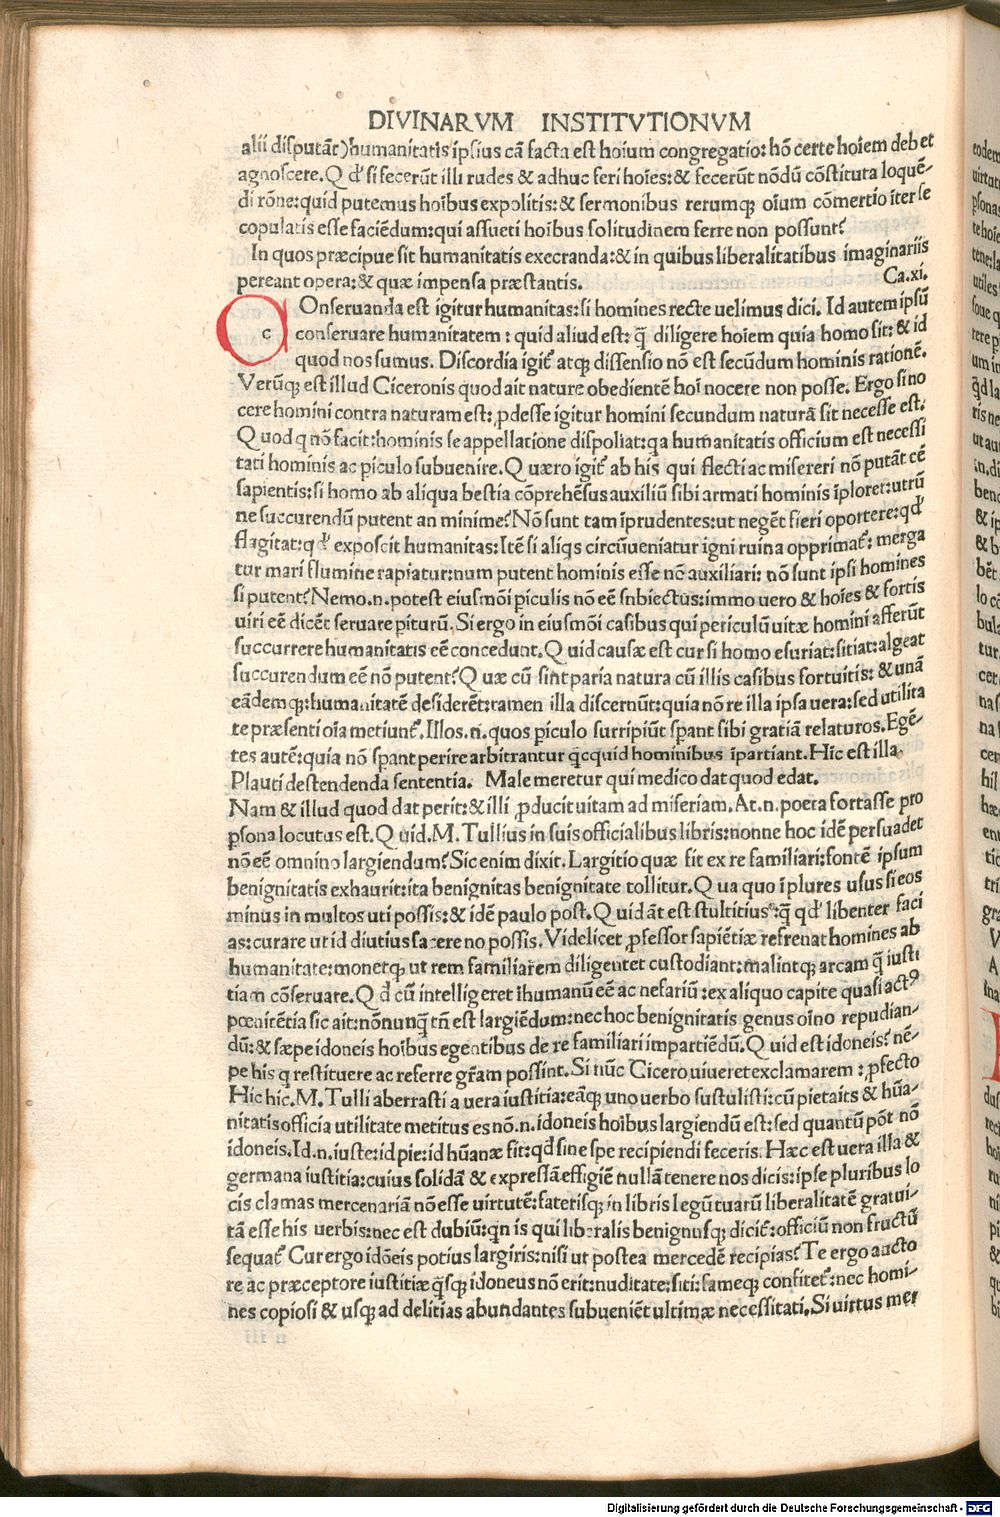 DIVINARVM INSTITVTIONVM
alii disputāt)humanitatis ipsius cā facta est hoium congregatio: hō certe hoiem debet
agnoscere.Q d' si fecerūt illi rudes & adhuc feri hoies: & fecerūt nōdū cōstituta loquē-
di rōne: quid putemus hoībus expolitis: & sermonibus rerumq; oium cōmertio īter se
copulatis esse faciēdum: qui assueti hoībus solitudinem ferre non possunt?
In quos præcipue sit humanitatis execranda: & in quibus liberalitatibus imaginariis
pereant opera: & quæ impensa præstantis. Ca.xi.
c Onseruanda est igitur humanitas: si homines recte uelimus dici. Id autem ipsū
conseruare humanitatem: quid aliud est: q̄ diligere hoiem quia homo sit: & id
quod nos sumus. Discordia igit' atq; dissensio nō est secūdum hominis rationē.
Verūq; est illud Ciceronis quod ait nature obedientē hoi nocere non posse. Ergo si no
cere homini contra naturam est: ꝓdesse igitur homini secundum naturā sit necesse est.
Q uod q nō facit: hominis se appellatione dispoliat: qa humanitatis officium est necessi
tati hominis ac piculo subuenire. Q uæro igit' ab his qui flecti ac misereri nō putāt cē
sapientis: si homo ab aliqua bestia cōprehēsus auxiliū sibi armati hominis īploret: utrū
ne succurendū putent an minime? Nō sunt tam īprudentes: ut negēt fieri oportere: qd'
flagitat: q d' exposcit humanitas: Itē si aliqs circūueniatur igni ruina opprimat': merga
tur mari flumine rapiatur: num putent hominis esse nō auxiliari: nō sunt ipsi homines
si putent? Nemo.n.potest eiusmōi piculis nō eē snbiectus: immo uero & hoies & fortis
uiri eē dicēt seruare piturū. Si ergo in eiusmōi casibus qui periculū uitæ homini afferūt
succurrere humanitatis eē concedunt. Q uid causæ est cur si homo esuriat: sitiat: algeat
succurendum eē nō putent? Q uæ cū sint paria natura cū illis casibus fortuitis: & unā
eādemq; humanitatē desiderēt: tamen illa discernūt: quia nō re illa ipsa uera: sed utilita
te præsenti oīa metiunt'. Illos.n.quos piculo surripiūt spant sibi gratiā relaturos. Egē-
tes autē: quia nō spant perire arbitrantur qcquid hominibus īpartiant. Hic est illa
Plauti destendenda sententia. Male meretur qui medico dat quod edat.
Nam & illud quod dat perit: & illi ꝓducit uitam ad miseriam. At.n.poeta fortasse pro
psona locutus est. Q uid.M.Tullius in suis officialibus libris: nonne hoc idē persuadet
nō eē omnino largiendum? Sic enim dixit. Largitio quæ fit ex re familiari: fontē ipsum
benignitatis exhaurit: ita benignitas benignitate tollitur. Q ua quo īplures usus sieos
minus in multos uti possis: & idē paulo post. Q uid āt est stultitius: q̄ qd' libenter faci
as: curare ut id diutius facere no possis. Videlicet ꝓfessor sapiētiæ refrenat homines ab
humanitate: monetq; ut rem familiarem diligentet custodiant: malintq; arcam q̄ iusti
tiam cōseruare. Q d' cū intelligeret īhumanū eē ac nefariū: ex aliquo capite quasi actꝰ
pœnitētia sic ait: nōnunq̄ tn̄ est largiēdum: nec hoc benignitatis genus oīno repudian-
dū: & sæpe idoneis hoībus egentibus de re familiari impartiēdū. Q uid est idoneis? nē-
pe his q restituere ac referre gr̄am possint. Si nūc Cicero uiueret exclamarem: ꝓfecto
Hic hic.M.Tulli aberrasti a uera iustitia: eāq; uno uerbo sustulisti: cū pietaits & hūa-
nitatis officia utilitate metitus es nō.n.idoneis hoibus largiendū est: sed quantū pōt nō
idoneis. Id.n.iuste: id pie: id hūanæ fit: qd' sine spe recipiendi feceris. Hæc est uera illa &
germana iustitia: cuius solidā & expressā effigiē nullā tenere nos dicis: ipse pluribus lo
cis clamas mercenariā nō esse uirtutē: faterisq; in libris legū tuarū liberalitatē gratui-
tā esse his uerbis: nec est dubiū: qn is qui liberalis benignusq; dicit': officiū non fructū
sequat'. Cur ergo idōeis potius largiris: nisi ut postea mercedē recipias? Te ergo aucto
re ac præceptore iustitiæ q̄sq; idoneus nō erit: nuditate: siti: fameq; confitet': nec homi-
nes copiosi & usq; ad delitias abundantes subueniēt ultimæ necessitati. Si uirtus mer
Digitalisierung gefördert durch die Deutsche Forschungsgemeinschaft - DFG